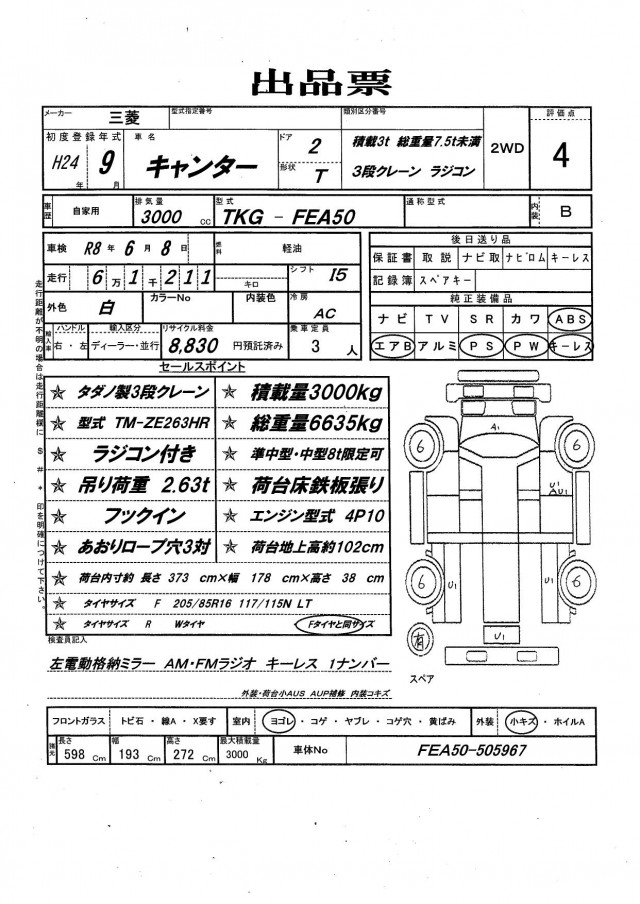 出品票
メーカー 三菱 型式指定番号 類別区分番号 評価点
初度登録年式 車名 ドア 2 積載3t 総重量7.5t未満 2WD 4
H24 年 9 月 キャンター 形状 T 3段クレーン ラジコン
車歴 自家用 排気量 3000 cc 型式 TKG - FEA50 通称型式 内装 B
車検 R8 年 6 月 8 日 燃料 軽油 後日送り品
保証書 取説 ナビ取 ナビロム キーレス
走行 6 万 1 千 2 1 1 キロ シフト I5 記録簿 スペアキー
外色 白 カラーNo 内装色 冷房 AC 純正装備品
ナビ TV SR カワ ABS
輸入車 ハンドル 右・左 輸入区分 ディーラー・並行 リサイクル料金 8,830 円預託済み 乗車定員 3 人 エアB アルミ PS PW キーレス
走行距離が不明の場合は走行距離欄に $ # * 印を明確につけて下さい。
セールスポイント
☆ タダノ製3段クレーン ☆ 積載量3000kg
☆ 型式 TM-ZE263HR ☆ 総重量6635kg
☆ ラジコン付き ☆ 準中型・中型8t限定可
☆ 吊り荷重 2.63t ☆ 荷台床鉄板張り
☆ フックイン ☆ エンジン型式 4P10
☆ あおりロープ穴3対 ☆ 荷台地上高約102cm
☆ 荷台内寸約 長さ 373 cm×幅 178 cm×高さ 38 cm
☆ タイヤサイズ F 205/85R16 117/115N LT
☆ タイヤサイズ R Wタイヤ Fタイヤと同サイズ
A1
6 6
U1 U1
6 U1 U1 6
U1
有
スペア
検査員記入
左電動格納ミラー AM・FMラジオ キーレス 1ナンバー
外装・荷台小AUS AUP補修 内装コキズ
フロントガラス トビ石・線A・X要す 室内 ヨゴレ・コゲ・ヤブレ・コゲ穴・黄ばみ 外装 小キズ・ホイルA
諸元 長さ 598 Cm 幅 193 Cm 高さ 272 Cm 最大積載量 3000 Kg 車体No FEA50-505967